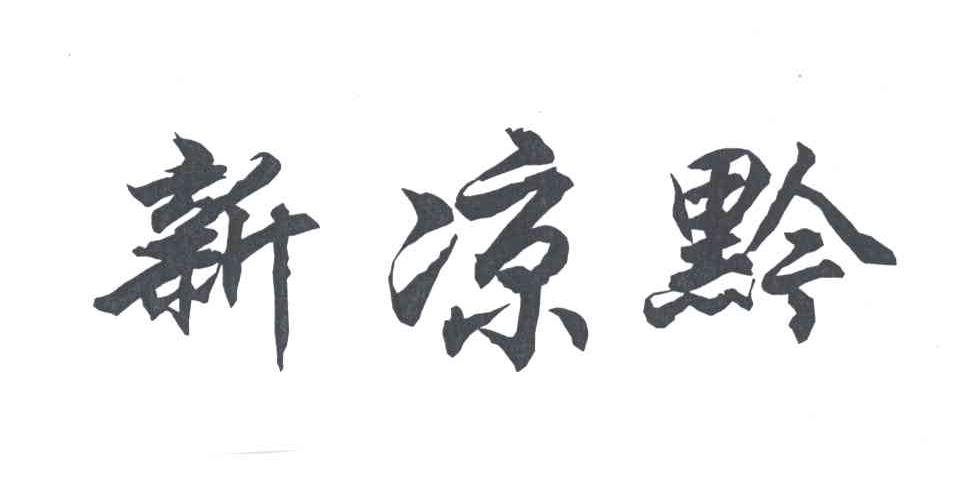 新凉黔